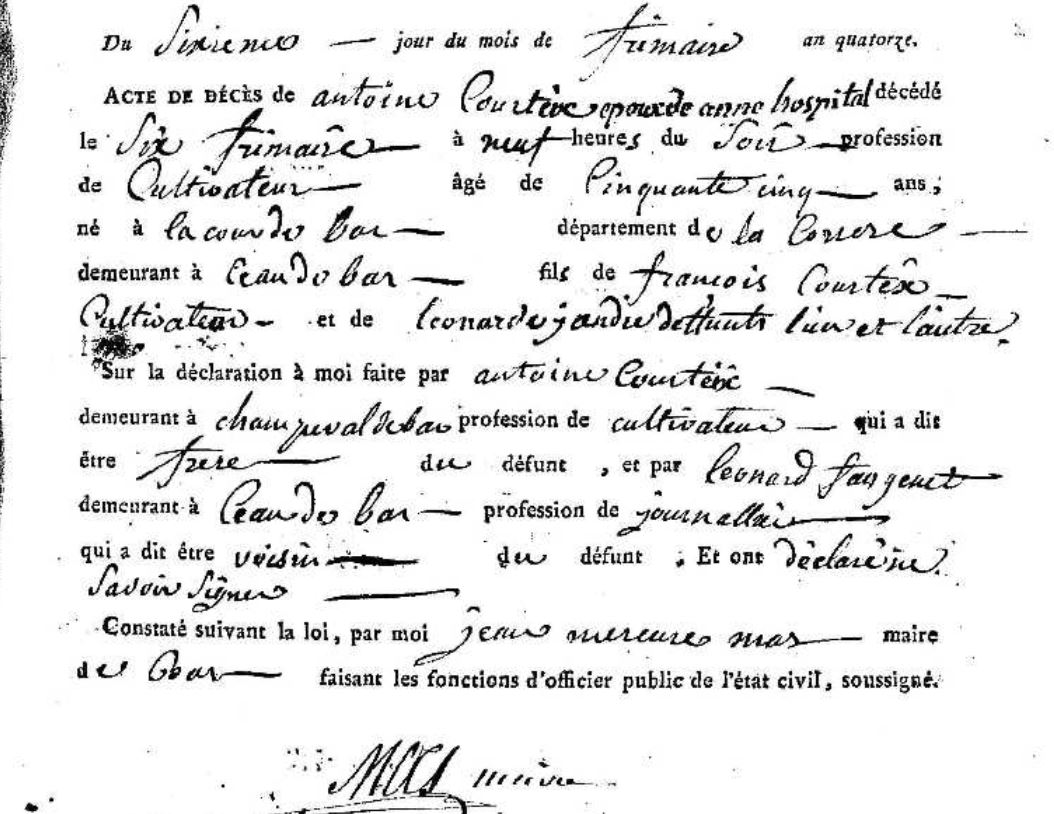 Du Sixieme jour du mois de frimaire an quatorze.
ACTE DE DÉCÈS de antoine Courteix epoux de anne hospital décédé
le Six frimaire à neuf heures du Soir profession
de Cultivateur âgé de Cinquante cinq ans ;
né à la cour de bar département de la Correze
demeurant à de bar fils de francois Courteix
Cultivateur et de leonarde deffunts l'un et l'autre.
Sur la déclaration à moi faite par antoine Courteix
demeurant à champeval de bar profession de cultivateur qui a dit
être frere du défunt , et par leonard
demeurant à de bar profession de journallier
qui a dit être voisin du défunt . Et ont déclaré ne
Savoir Signer
Constaté suivant la loi, par moi jean mercure mas maire
de Bar faisant les fonctions d'officier public de l'état civil, soussigné.
Mas maire